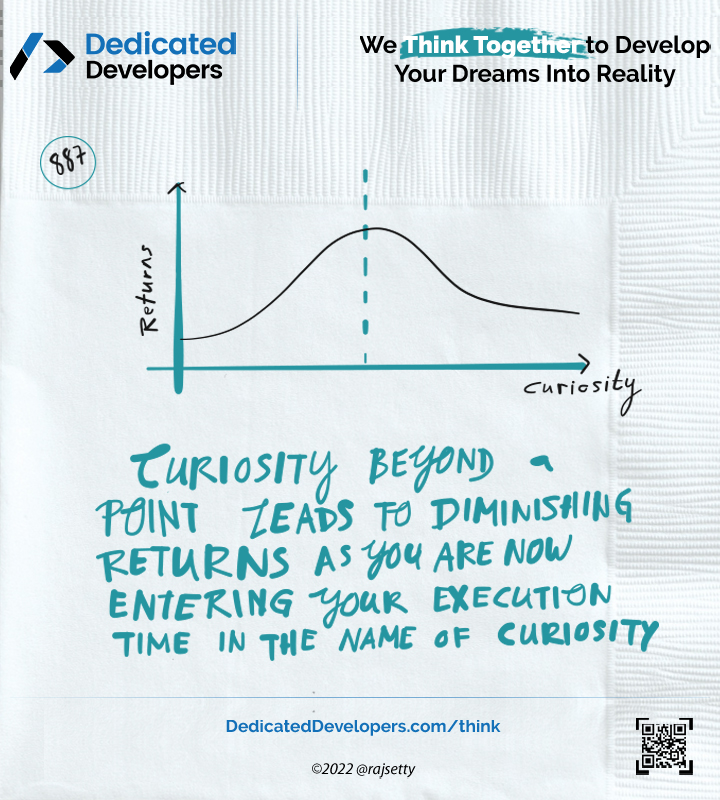 Dedicated
Developers
We Think Together to Develop
Your Dreams Into Reality
887
Returns
Curiosity
CURIOSITY BEYOND a
POINT LEADS TO DIMINISHING
RETURNS AS YOU ARE NOW
ENTERING YOUR EXECUTION
TIME IN THE NAME OF CURIOSITY
DedicatedDevelopers.com/think
©2022 @rajsetty